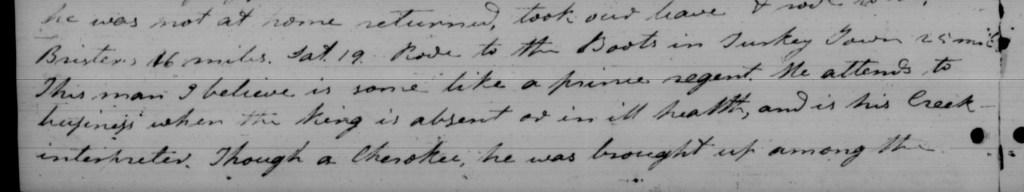 he was not at home returned, took our leave & rode
Bristers 16 miles. Sat. 19. Rode to the Boots in Turkey Town 25 miles
This man I believe is some like a prince regent. He attends to
business when the king is absent or in ill health, and is his Creek
interpreter. Though a Cherokee, he was brought up among the